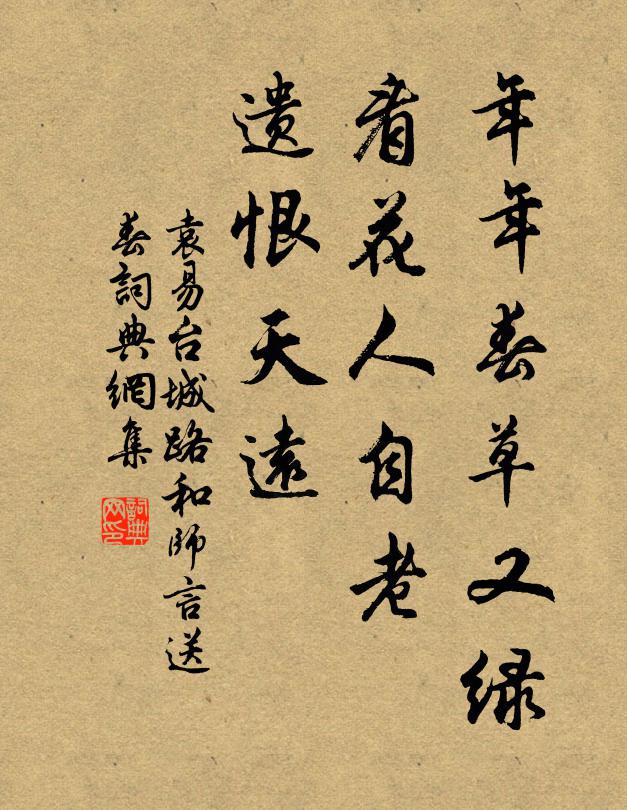 年年春草又緑
看花人自老
遺恨天遠
袁易台城路和師言送
春詞典網集
詞典网印